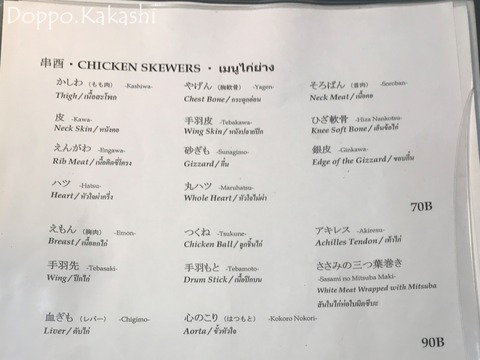 Doppo.Kakashi
串酉・CHICKEN SKEWERS・เมนูไก่ย่าง
かしわ (もも肉) -Kashiwa-
Thigh/เนื้อสะโพก
やげん (胸軟骨) -Yagen-
Chest Bone/กระดูกอ่อน
そろばん (首肉) -Soroban-
Neck Meat/เนื้อคอ
皮 -Kawa-
Neck Skin/หนังคอ
手羽皮 -Tebakawa-
Wing Skin/หนังปลายปีก
ひざ軟骨 -Hiza Nankotsu-
Knee Soft Bone/เอ็นข้อไก่
えんがわ -Engawa-
Rib Meat/เนื้อติดซี่โครง
砂ぎも -Sunagimo-
Gizzard/กึ๋น
銀皮 -Ginkawa-
Edge of the Gizzard/ขอบกึ๋น
ハツ -Hatsu-
Heart/หัวใจผ่าครึ่ง
丸ハツ -Maruhatsu-
Whole Heart/หัวใจไม่ผ่า
70B
えもん (胸肉) -Emon-
Breast/เนื้ออกไก่
つくね -Tsukune-
Chicken Ball/ลูกชิ้นไก่
アキレス -Akiresu-
Achilles Tendon/เท้าไก่
手羽先 -Tebasaki-
Wing/ปีกไก่
手羽もと -Tebamoto-
Drum Stick/เนื้อปีกบน
ささみの三つ葉巻き
-Sasami no Mitsuba Maki-
White Meat Wrapped with Mitsuba
สันในไก่ห่อใบมิตซึบะ
血ぎも (レバー) -Chigimo-
Liver/ตับไก่
心のこり (はつもと) -Kokoro Nokori-
Aorta/ขั้วหัวใจ
90B